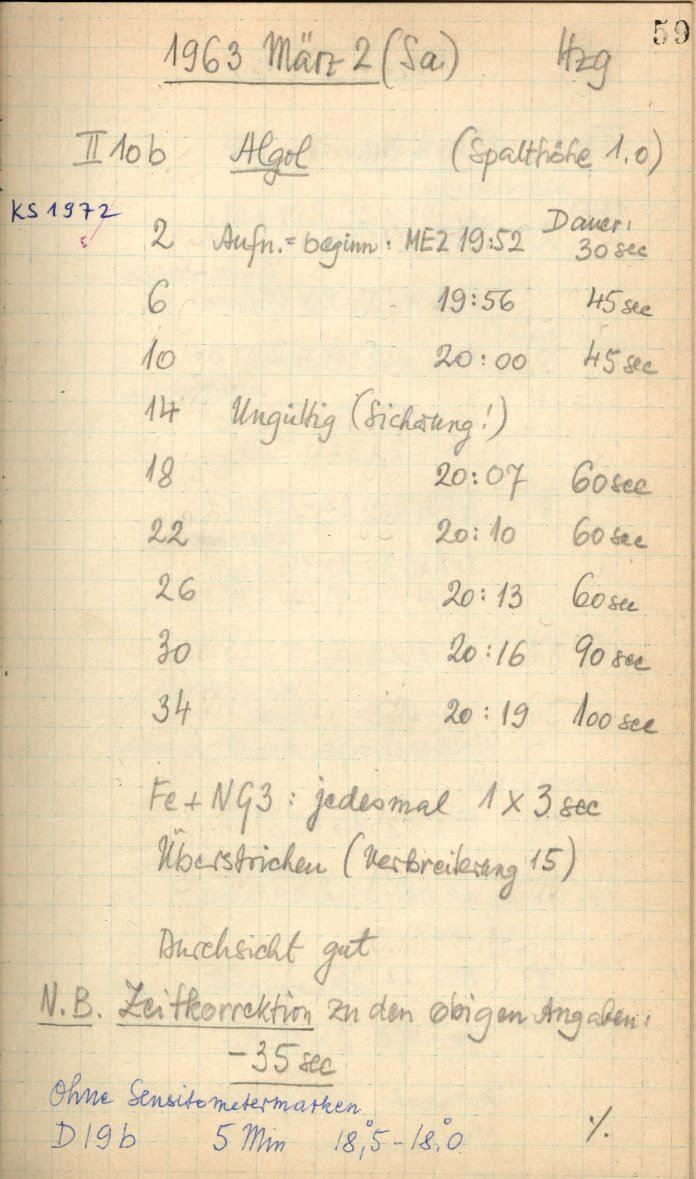 59
1963 März 2 (Sa) Hzg
II 10b Algol (Spalthöhe 1.0)
KS 1972
2 Aufn.=beginn: MEZ 19:52 Dauer: 30 sec
6 19:56 45 sec
10 20:00 45 sec
14 Ungültig (Sicherung!)
18 20:07 60 sec
22 20:10 60 sec
26 20:13 60 sec
30 20:16 90 sec
34 20:19 100 sec
Fe + NG3: jedesmal 1 x 3 sec
Überstrichen (Verbreiterung 15)
Durchsicht gut
N.B. Zeitkorrektion zu den obigen Angaben:
-35 sec
Ohne Sensitometermarken
D19b 5 Min 18°,5 - 18°,0 ./.